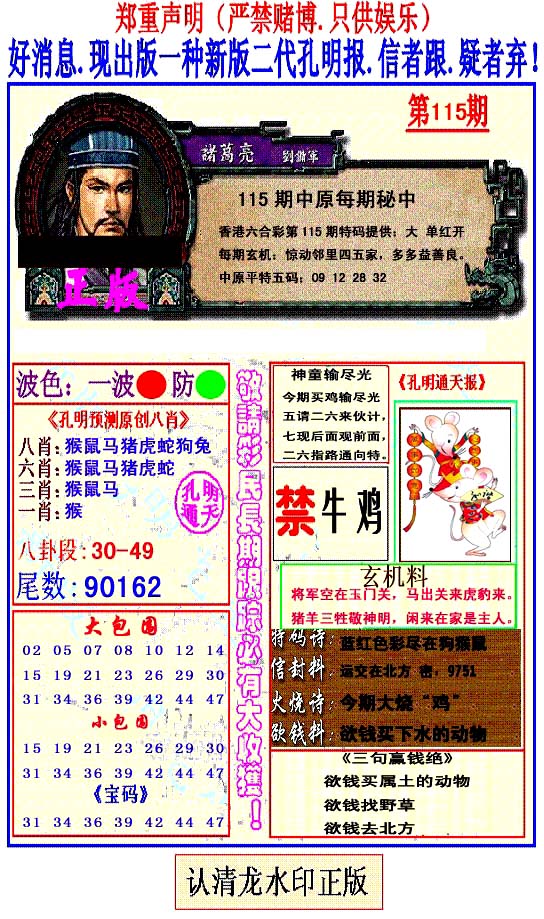 郑重声明（严禁赌博.只供娱乐）
好消息.现出版一种新版二代孔明报.信者跟.疑者弃!
第115期
諸葛亮 劉備軍
115 期中原每期秘中
香港六合彩第 115 期特码提供：大 单红开
每期玄机：惊动邻里四五家，多多益善良。
中原平特五码：09 12 28 32
正版
波色：一波 防
《孔明预测原创八肖》
八肖:猴鼠马猪虎蛇狗兔
六肖:猴鼠马猪虎蛇
三肖:猴鼠马
一肖:猴
孔明
通天
八卦段:30-49
尾数:90162
大包围
02 05 07 08 10 12 14
15 19 21 23 26 29 30
31 34 36 39 42 44 47
小包围
15 19 21 23 26 29 30
31 34 36 39 42 44 47
《宝码》
31 34 36 39 42 44 47
敬請彩民長期跟踪必有大收獲！
神童输尽光
今期买鸡输尽光
五请二六来伙计，
七现后面观前面，
二六指路通向特。
《孔明通天报》
禁牛鸡
玄机料
将军空在玉门关，马出关来虎豹来。
猪羊三牲敬神明，闲来在家是主人。
特码诗：蓝红色彩尽在狗猴鼠
信封料：运交在北方 密，9751
火烧诗：今期大烧“鸡”
欲钱料：欲钱买下水的动物
《三句赢钱绝》
欲钱买属土的动物
欲钱找野草
欲钱去北方
认清龙水印正版